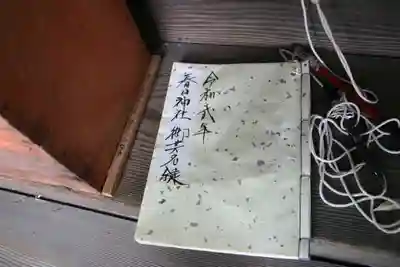 令和弐年
春日神社 御芳名録